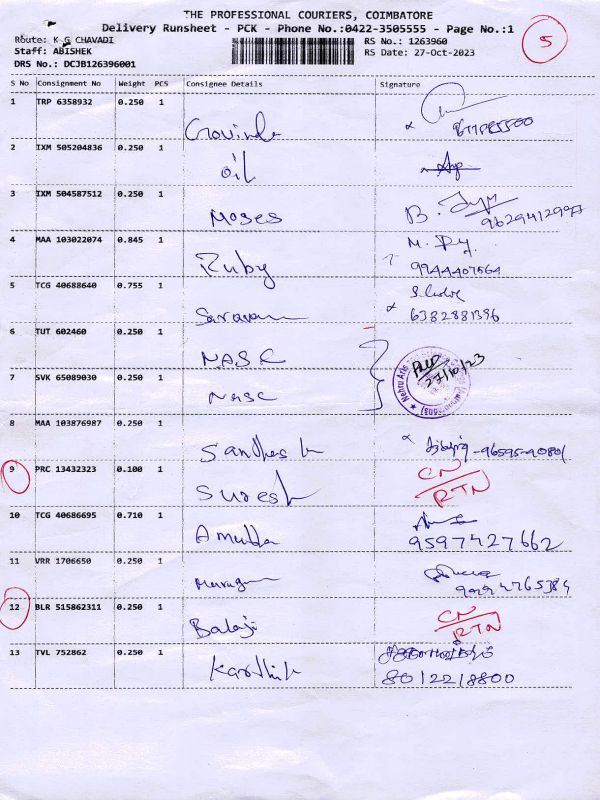 THE PROFESSIONAL COURIERS, COIMBATORE
Delivery Runsheet - PCK - Phone No.:0422-3505555 - Page No.:1
5
Route: K G CHAVADI
RS No.: 1263960
Staff: ABISHEK
RS Date: 27-Oct-2023
DRS No.: DCJB126396001
S No Consignment No Weight PCS Consignee Details Signature
1 TRP 6358932 0.250 1 Govinda
2 IXM 505204836 0.250 1 Oil
3 IXM 504587512 0.250 1 Moses B.
4 MAA 103022074 0.845 1 Ruby
9944407564
5 TCG 40688640 0.755 1 Saravana
6382881396
6 TUT 602460 0.250 1 NASC
27/10/23
7 SVK 65089030 0.250 1 NASC
8 MAA 103876987 0.250 1 Santhosh
9 PRC 13432323 0.100 1 Suresh CN
RTN
10 TCG 40686695 0.710 1 Amudha
9597427662
11 VRR 1706650 0.250 1 Murugan
12 BLR 515862311 0.250 1 Balaji CN
RTN
13 TVL 752862 0.250 1 Karthik
8012218800